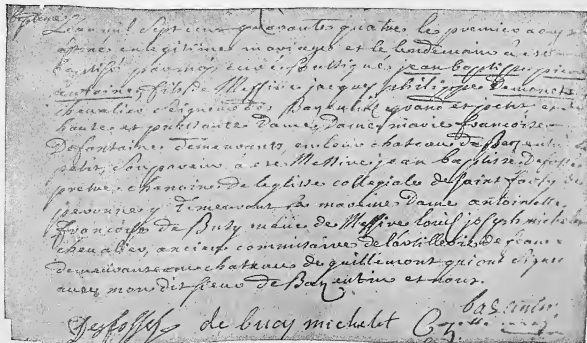 Baptême
L'an mil sept cent quarante quatre le premier aoust
est né en legitime mariage et le lendemain a été
baptisé par moy curé soussigné jean baptiste pierre
antoine, fils de Messire jacques philippe de monet
chevalier seigneur des Bazentin grand et petit et de
haute et puissante Dame, Dame marie francoise
De fontaine demeurants en leur chateau de Bazentin
petit, son parain a été Messire jean baptiste de fosse
pretre chanoine de leglise collegiale de saint farcy de
peronne y demeurant la maraine Dame antoinette
francoise de Bucy de Messire louis joseph michelet
chevalier, ancien commissaire de lartillerie de france
demeurante au chateau de guillemont qui ont signé
avec mon dit sieur de Bazentin et nous.
de fosse de bucy michelet bazentin